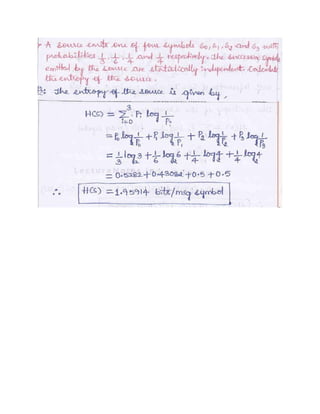 A source emits one of four symbols S0, S1, S2 and S3 with
probabilities 1/3, 1/6, 1/4 and 1/4 respectively. The successive symbols
emitted by the source are statistically independent. Calculate
the entropy of the source.
The entropy of the source is given by,
H(S) = Σ_{i=0}^{3} Pi log 1/Pi
= P0 log2 1/P0 + P1 log2 1/P1 + P2 log2 1/P2 + P3 log2 1/P3
= 1/3 log2 3 + 1/6 log2 6 + 1/4 log2 4 + 1/4 log2 4
= 0.5282 + 0.43082 + 0.5 + 0.5
∴ H(S) = 1.95914 bits/msg symbol